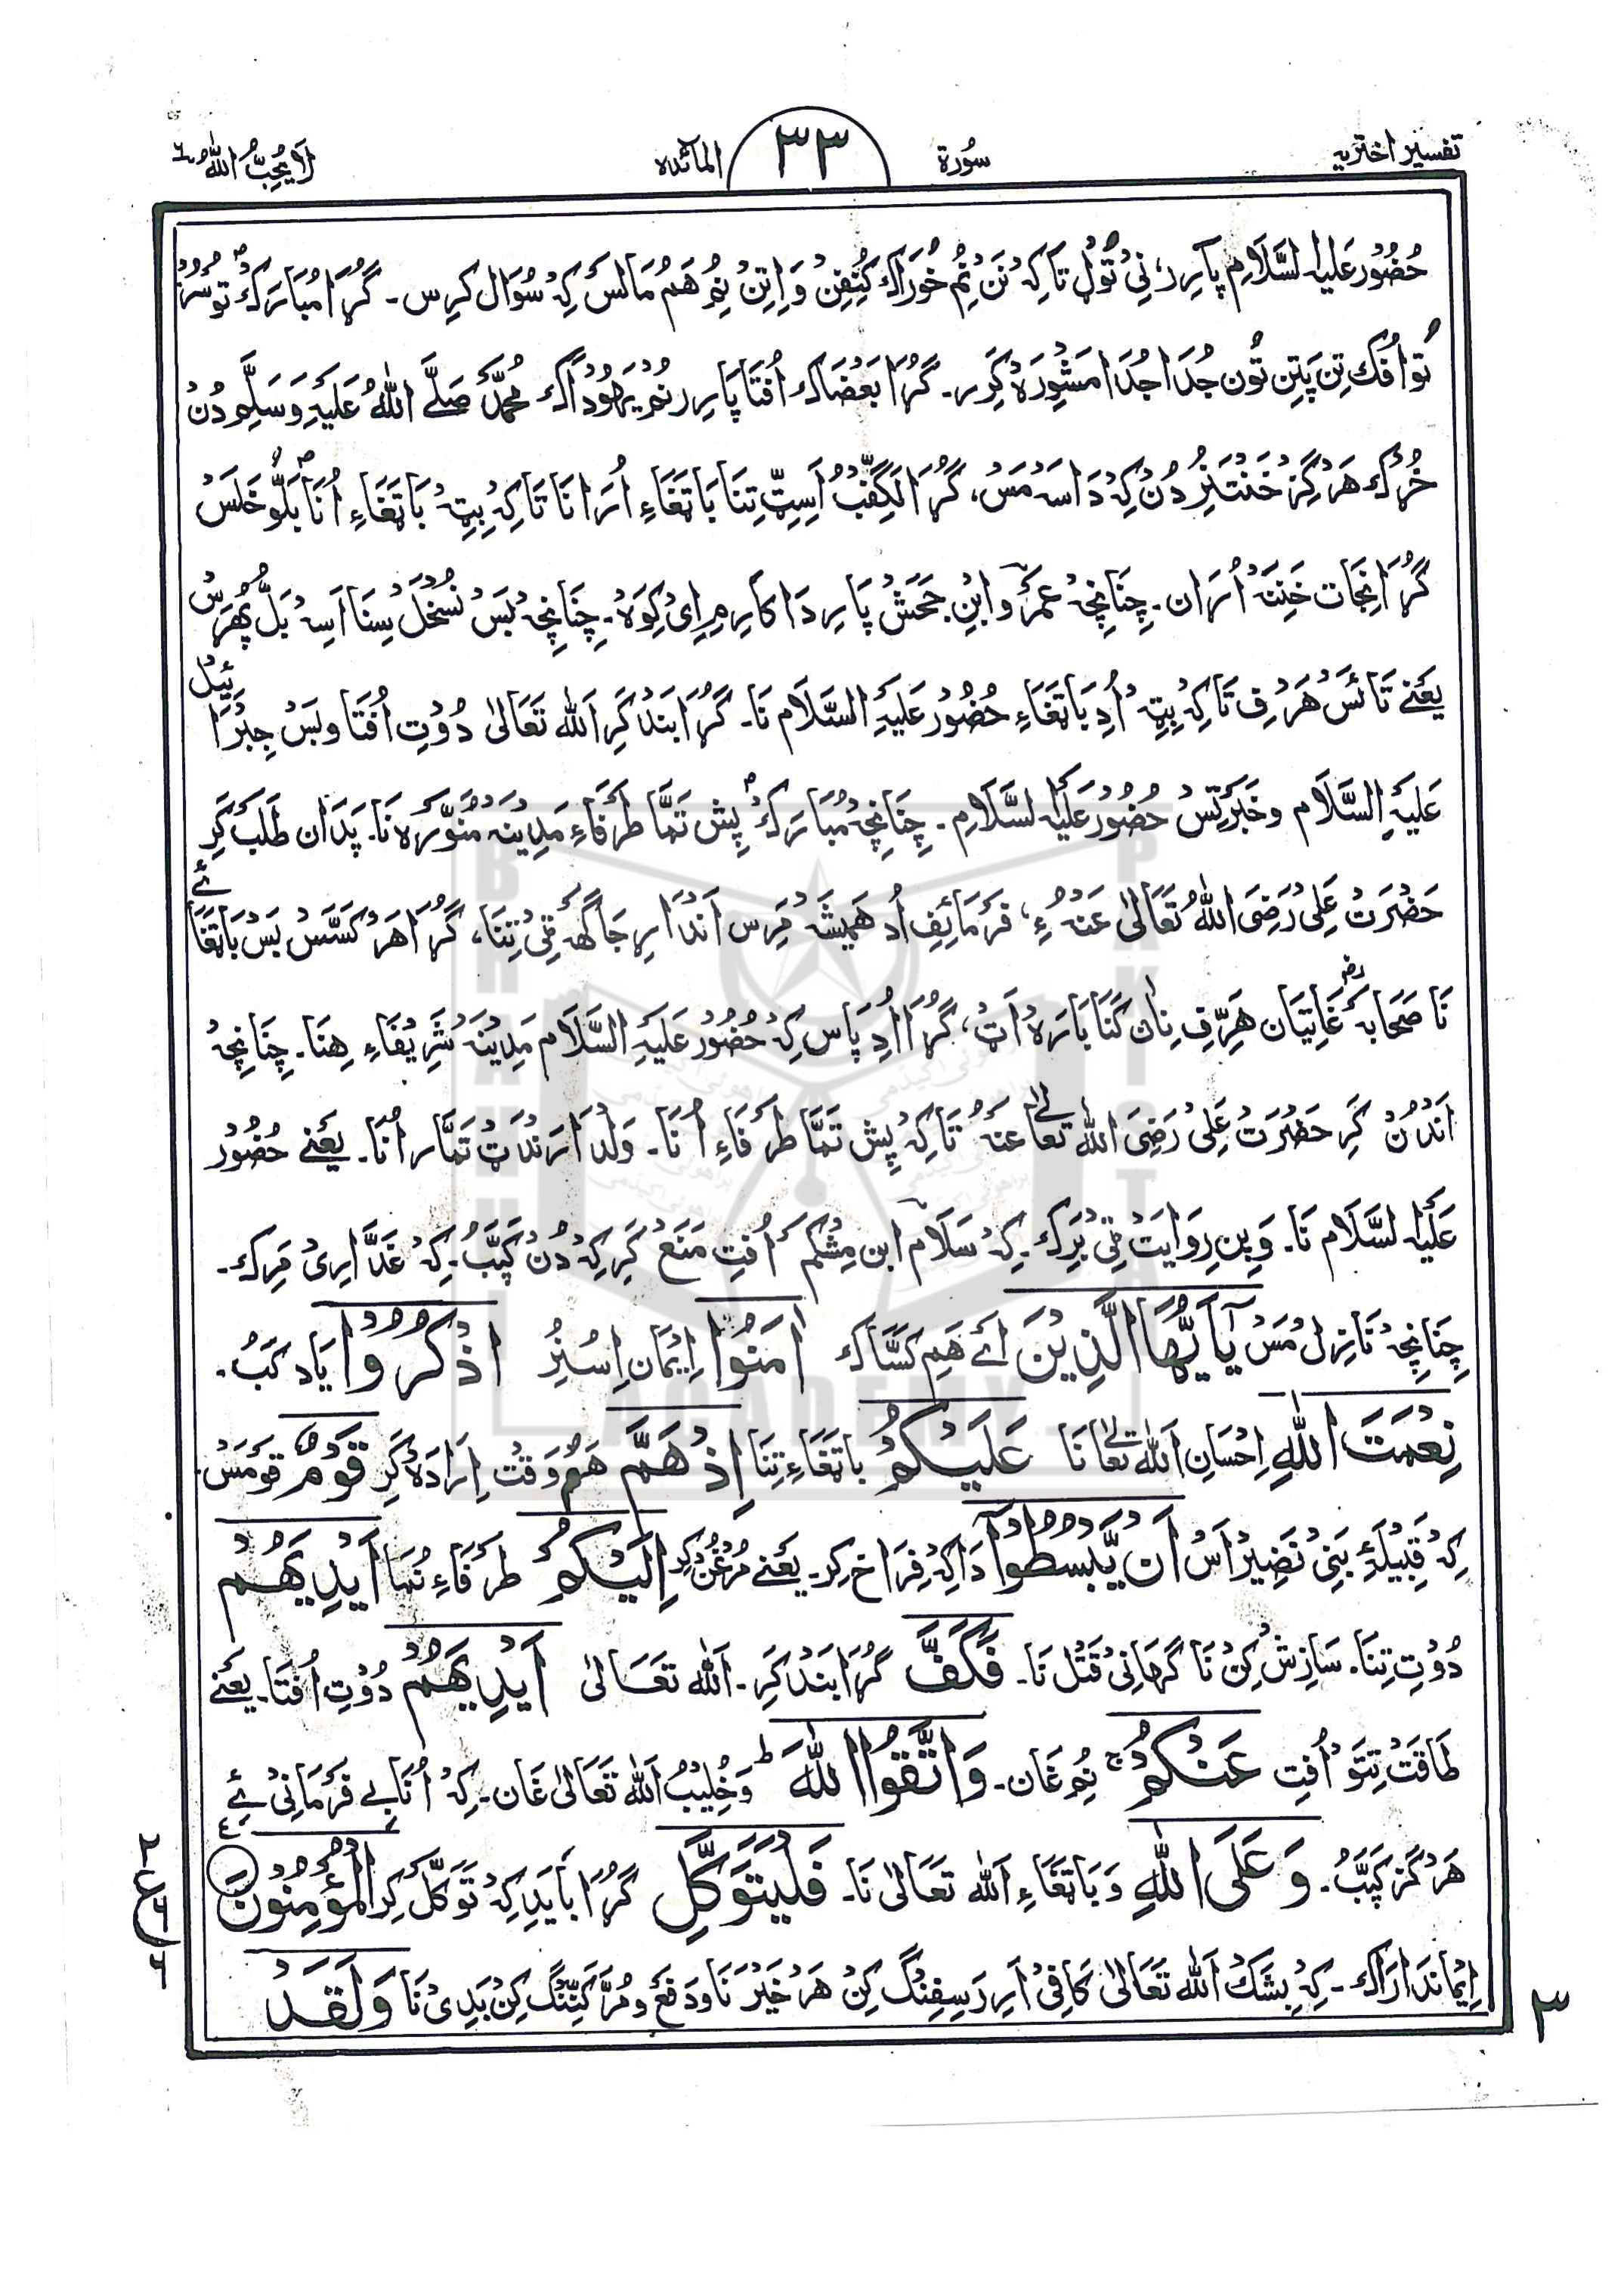 تفسیر اختریہ سُورۃ ٣٣ المآئدہ لَا یُحِبُّ اللّٰہُ ٦
حُضُوْر عَلَیْہِ السَّلَامِ پَارِر، نِیْ تُوْلْ تَاکِہْ نَنْ نُمْ خُوْرَاک کُنِفِنْ وَاِتِنْ نُمْ ھَمْ مَالَسْ کِہْ سُوَال کِرِس۔ گُرَا مُبَارَکْ تُوْسُرْ
تَوْ اُفْک تِنْ پَتِنْ تُوْن جُدَا جُدَا مَشْوِرَہْ کَرِر۔ گُرَا بَعْضَاک اُفْتَا پَارِر نُمْ یَھُوْدَاک مُحَمَّدْ صَلَّے اللّٰہُ عَلَیْہِ وَسَلَّمِ دُنْ
خُرْک ھَرْگِزْ خَنْتَنِرْ دُنْ کِہْ دَاسَہ مَسْ، گُرَا لَگِفَّبْ اَسِتْ تِنَا بَاتِغَاءِ اُرَانَا تَاکِہْ بِٹِہْ بَاتِغَاءِ اُنَا بَلُّو خَلَسْ
گُرَا نِجَات خَنِنَہْ اُرَان۔ چِنَانِچِہْ عَمَرْ و ابْنِ جَحَشْ پَارِر دَا کَارِمِرِ اِیْ کِوَہْ۔ چِنَانِچِہْ بَسْ نُسْخَلْ سِنَا اَسِہْ بَلُّ پُھَرَسْ
یَعْنِے تَا ئَسْ ھَرْفِ تَاکِہْ بِٹِہْ اُدِ بَاتِغَاءِ حُضُوْر عَلَیْہِ السَّلَام نَا۔ گُرَا بَنْد کَرِ اَللّٰہ تَعَالیٰ دُوْتِ اُفْتَا وبَسْ جِبْرَائِیْل
عَلَیْہِ السَّلَام وخَبَرْ تِسْ حُضُوْر عَلَیْہِ السَّلَامِ۔ چِنَانِچِہْ مُبَارَکْ پِش تَمَّا طَرَفَاءِ مَدِیْنَہ مُنَوَّرَہ نَا۔ پَدَان طَلَبْ کَرِ
حَضْرَتْ عَلِیْ رَضِیَ اللّٰہُ تَعَالیٰ عَنْہُ ءِ، فَرْمَائِفِ اُدْ ھَمِیْشَہ مَرِس اَنْدَا رِ جَاگَھْ ٹِی تِنَا، گُرَا ھَرْ کَسَّسْ بَسْ بَاتِغَائے
نَا صَحَابَہ غَاتِیَان ھَرِّفِ نِان کَنَا بَارَہ اَٹْ، گُرَا اُدِ پَاس کِہْ حُضُوْر عَلَیْہِ السَّلَام مَدِیْنَہْ شَرِیْفَاءِ ھِنَا۔ چِنَانِچِہْ
اَنْدُنْ کَرِ حَضْرَتْ عَلِیْ رَضِیَ اللّٰہُ تَعَالےٰ عَنْہُ تَاکِہْ پِش تَمَّا طَرَفَاءِ اُنَا۔ وَلْدَا رَنْدَٹْ تَمَّار اُنَا۔ یَعْنِے حُضُوْر
عَلَیْہِ السَّلَام نَا۔ وَپِن رِوَایَتْ ٹِی بَرِک۔ کِہْ سَلَام ابْن مِشْکَم اُفْتِ مَنَعْ کَرِ کِہْ دُنْ کَپَّبْ۔ کِہْ غَدَّارِیْ مَرِک۔
چِنَانِچِہْ نَازِل مَسْ یٰٓاَیُّھَا الَّذِیْنَ اَے ھَمْ کَسَّاک اٰمَنُوا اِیْمَان اِسُنِرْ اذْکُرُوْا یَاد کَبْ۔
نِعْمَتَ اللّٰہِ اِحْسَانِ اَللّٰہ تَعَالےٰ نَا عَلَیْکُمْ بَاتِغَاءِ تِنَا اِذْ ھَمَّ ھَمْ وَقْت اِرَادَہ کَرِ قَوْمٌ قَوْمَسْ
کِہْ قَبِیْلَۂِ بَنِیْ نَضِیْر اَسْ اَنْ یَّبْسُطُوْٓا دَاکِہْ فِرَاخ کِر۔ یَعْنِے مُرْغُن کِر اِلَیْکُمْ طَرَفَاءِ نُمَا اَیْدِیَھُمْ
دُوْتِ تِنَا۔ سَازِشْ کِنْ نَاگَھَانِیْ قَتْل نَا۔ فَکَفَّ گُرَا بَنْد کَرِ۔ اَللّٰہ تَعَالیٰ اَیْدِیَھُمْ دُوْتِ اُفْتَا۔ یَعْنِے
طَاقَتْ تِتَوْ اُفْتِ عَنْکُمْ ج نُمْ غَان۔ وَاتَّقُوا اللّٰہَ ط وَخُلِیْبْ اَللّٰہ تَعَالیٰ غَان۔ کِہْ اُنَا بے فَرْمَانِیْ ئِے
ھَرْگِز کَپَّبْ۔ وَعَلَی اللّٰہِ وَبَاتِغَاءِ اَللّٰہ تَعَالیٰ نَا۔ فَلْیَتَوَکَّلِ گُرَا بَایَدِ کِہْ تَوَکَّلْ کِر الْمُؤْمِنُوْنَ ع
اِیْمَاندَارَاک۔ کِہْ بِشَکْ اَللّٰہ تَعَالیٰ کَافِیْ اَرِ رَسِفِنْگ کِنْ ھَرْ خَیْر نَا وَدَفَعْ و مُرّ کَنِنْگ کِنْ بَدِیْ نَا وَلَقَدْ
٢
ع
٦
٦
٣
BRAHUI
ACADEMY
PAKISTAN